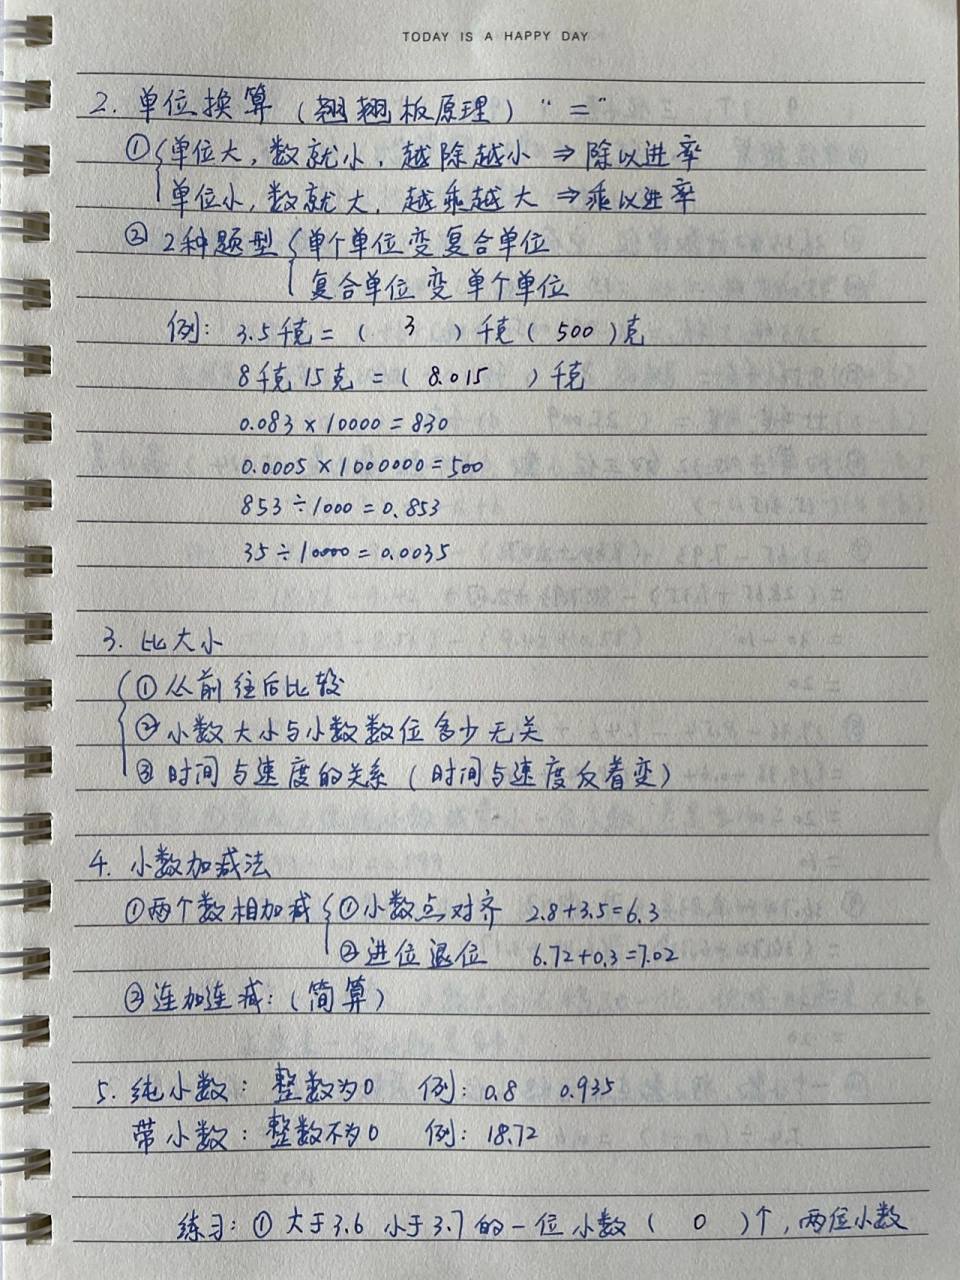 TODAY IS A HAPPY DAY
2. 单位换算（翘翘板原理）“＝”
① 单位大，数就小，越除越小 ⇒ 除以进率
单位小，数就大，越乘越大 ⇒ 乘以进率
② 2种题型 单个单位变复合单位
复合单位变单个单位
例：3.5千克＝（ 3 ）千克（ 500 ）克
8千克15克＝（ 8.015 ）千克
0.083×10000＝830
0.0005×1000000＝500
853÷1000＝0.853
35÷10000＝0.0035
3. 比大小
① 从前往后比较
② 小数大小与小数数位多少无关
③ 时间与速度的关系（时间与速度反着变）
4. 小数加减法
① 两个数相加减 ① 小数点对齐 2.8+3.5=6.3
② 进位退位 6.72+0.3=7.02
② 连加连减：（简算）
5. 纯小数：整数为0 例：0.8 0.935
带小数：整数不为0 例：18.72
练习：① 大于3.6 小于3.7的一位小数（ 0 ）个，两位小数